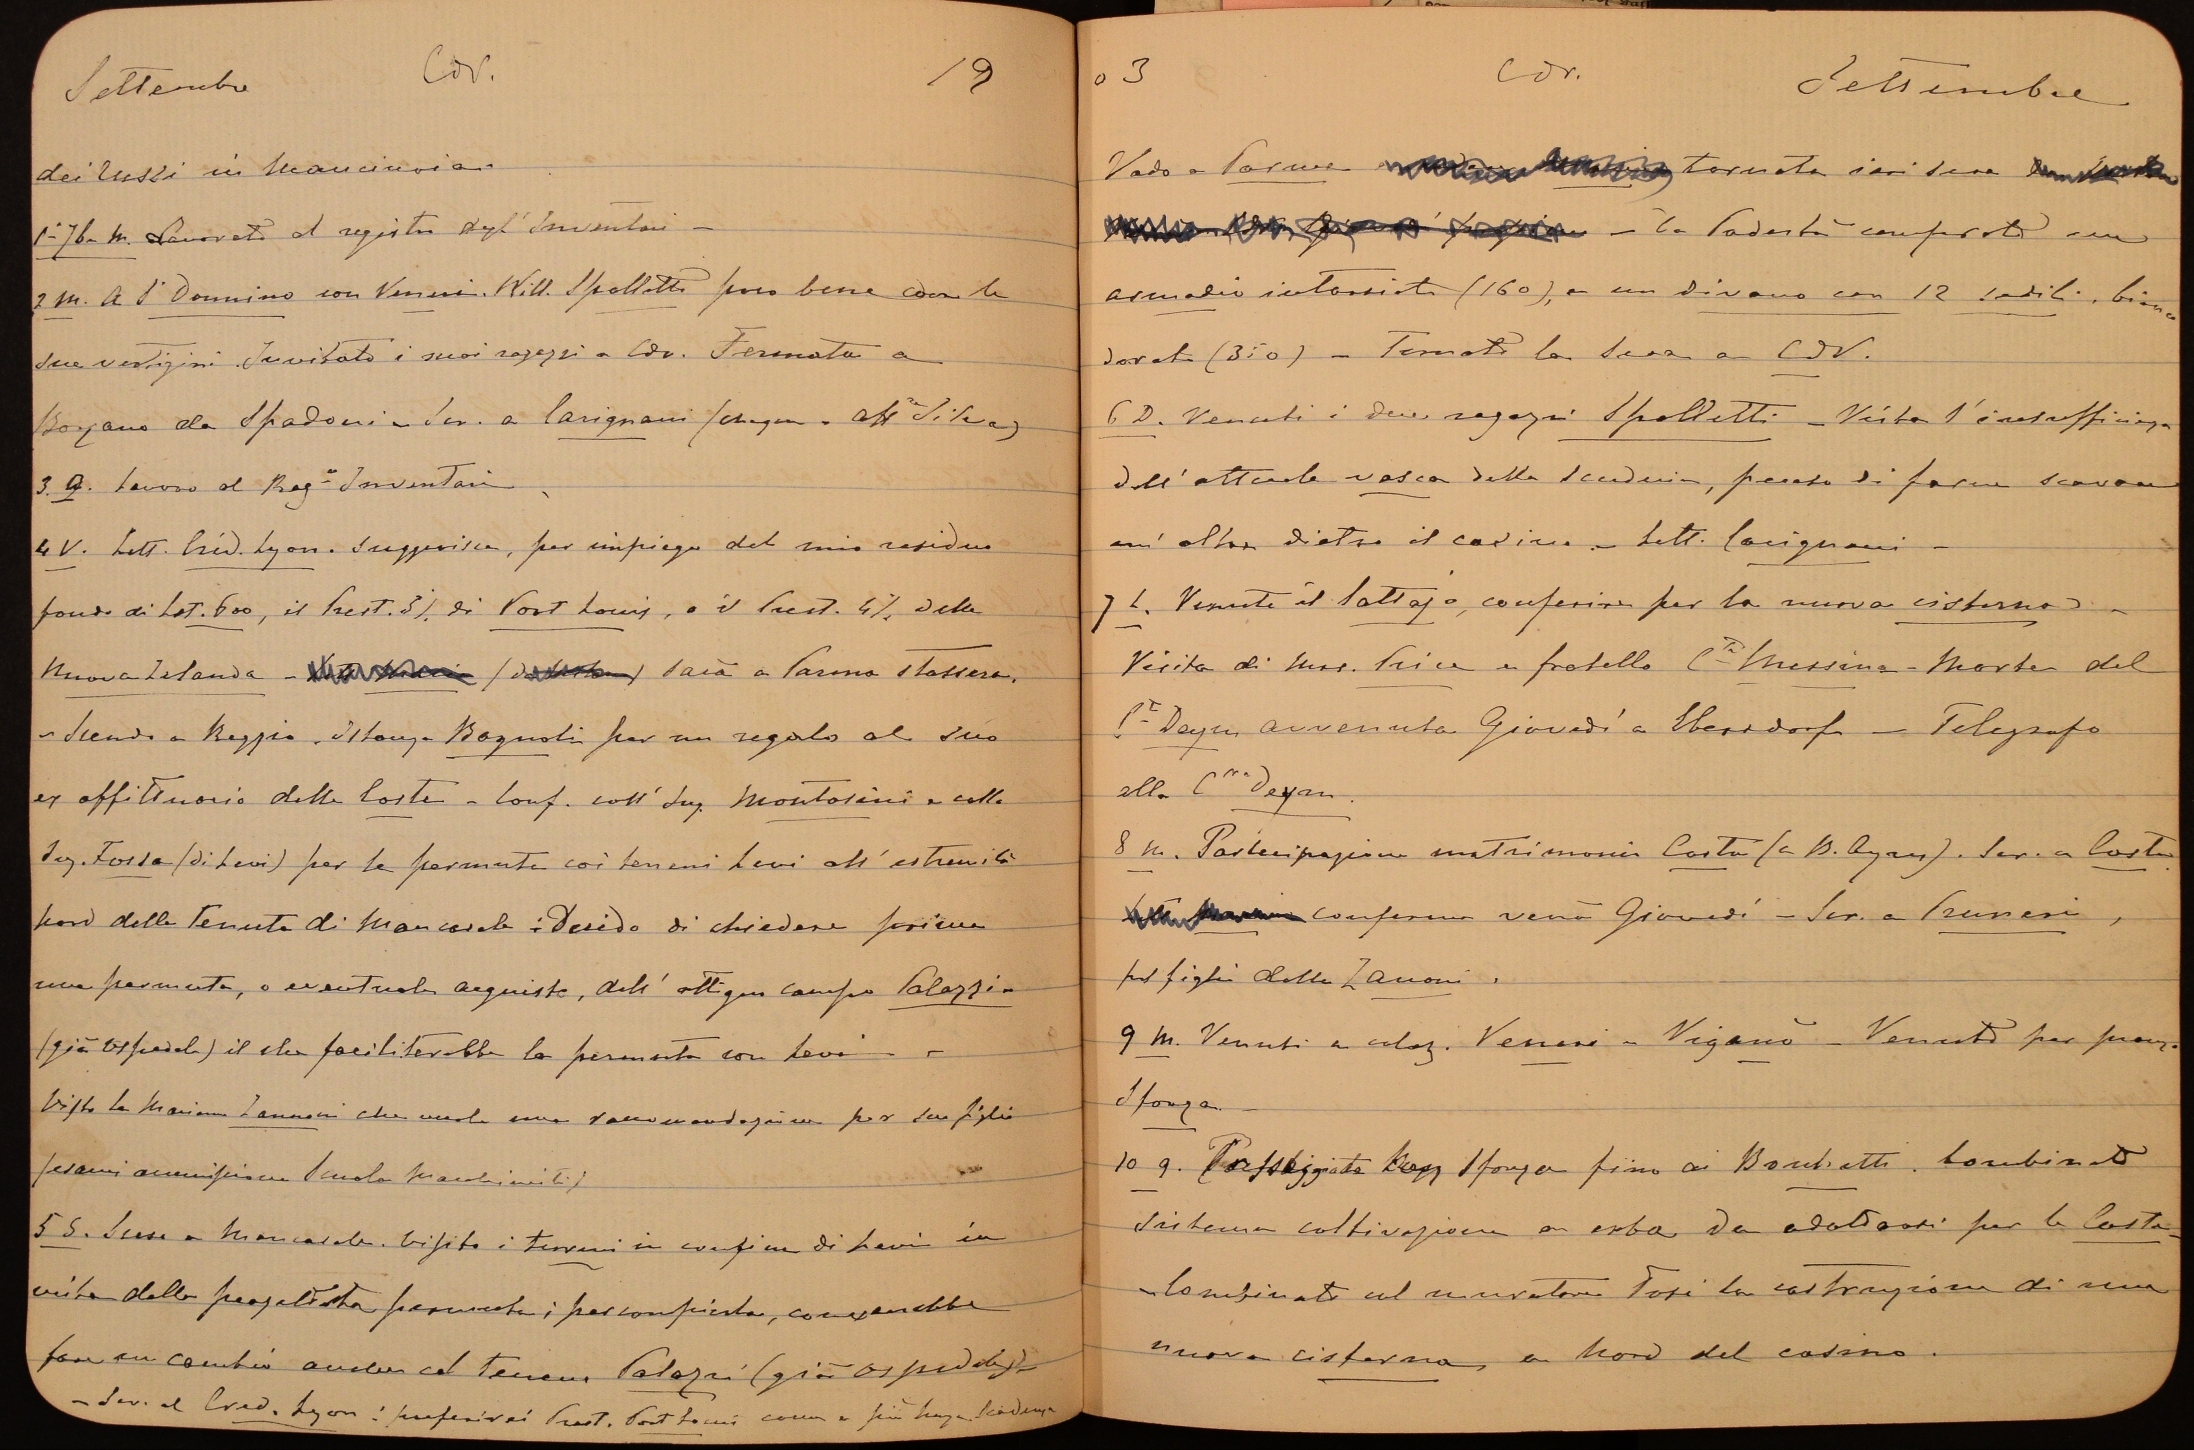 Settembre CdV. 19
dei Russi in Manciuria.
1º 7bre M. Lavorato al registro degl' Inventari –
2 M. A S. Donnino con Veneri. Will. Spalletti poco bene con le
sue vertigini. Invitato i suoi ragazzi a CdV. Fermata a
Bozzano da Spadoni – Scr. a Carignani
3. G. Lavoro al Reg.º Inventari
4 V. Lett. Créd. Lyon. suggerisce, per impiego del mio residuo
fondo di Lst. 600, il Prest. 3% di Port Louis, o il Prest. 4% della
Nuova Zelanda – sarà a Parma stassera.
– Scendo a Reggio. Istanza Bagnoli per un regalo al suo
ex affittuario della Costa – Conf. coll' Ing. Montasini e colla
Ing. Fossa (di Levi) per la permuta coi terreni Levi all' estremità
Nord della Tenuta di Mancasale: Decido di chiedere prima
una permuta, o eventuale acquisto, dell' attiguo campo Palazzi –
(già Ospedale) il che faciliterebbe la permuta con Levi –
Visto la Mariana Zannoni che vuole una raccomandazione per suo figlio
(esami ammissione Scuola Macchinisti)
5 S. Scese a Mancasale. Visito i terreni in confine di Levi in
vista della progettata permuta; per compierla, converrebbe
fare un cambio anche col terreno Palazzi (già Ospedale) –
– Scr. al Cred. Lyon: preferirei Prest. Port Louis come a più lunga scadenza
03 CdV. Settembre
Vado a Parma tornata ieri sera
– La Podestà comperato un
armadio intarsiato (160), e un divano con 12 sedili, bianco
dorato (350) – Tornato la sera a CdV.
6 D. Venuti i due ragazzi Spalletti – Vista l'insufficienza
dell' attuale vasca della Scuderia, penso di farne scavare
un' altra dietro il casino – Lett. Carignani –
7 L. Venuto il lattajo, conferire per la nuova cisterna –
Visita di Mrs. Price e fratello Cte Messina – Morte del
Cte Deym avvenuta Giovedì a Ebersdorf – Telegrafo
alla Cssa Deym.
8 M. Partecipazione matrimonio Costa (a B. Ayres). Scr. a Costa
conferma verrà Giovedì – Scr. a Pruneri,
pel figlio della Zanoni.
9 M. Venuti a colaz. Veneri e Viganò – Venuto per pranzo
Sforza –
10 G. Passeggiata Sforza fino ai Boschetti. Combinato
sistema coltivazione a erba da adottarsi per la Costa –
– Combinato col muratore Tosi la costruzione di una
nuova cisterna, a Nord del casino.